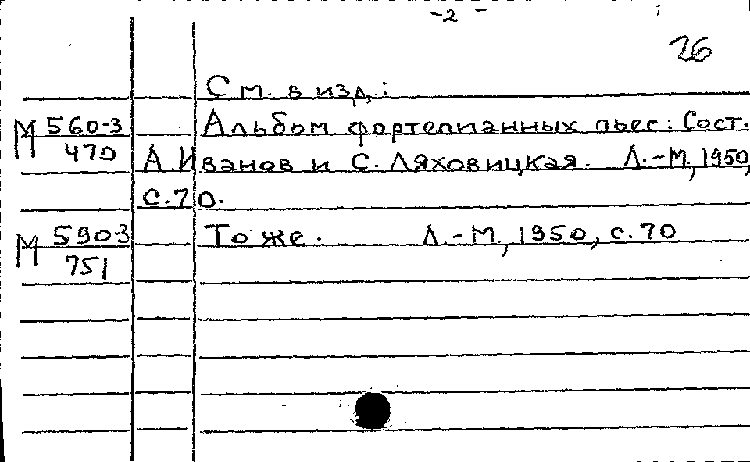 -2-
26
См. в изд.:
М 560-3 Альбом фортепианных пьес: Сост.
470 А Иванов и С. Ляховицкая. Л.-М., 1950,
с.70.
М 590-3 То же. Л.-М., 1950, с. 70
751